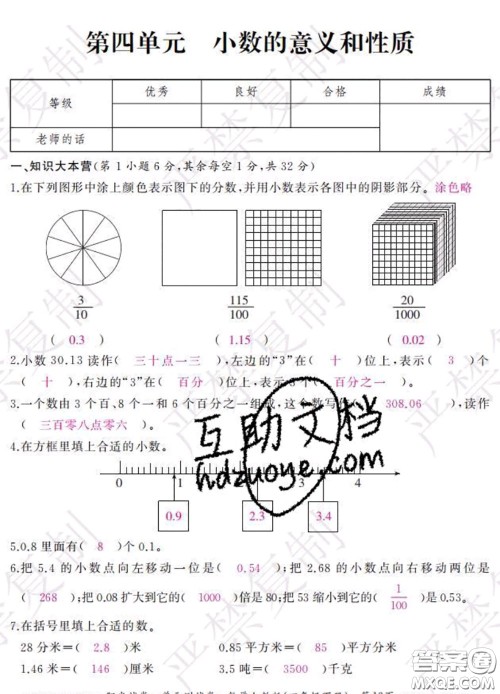 第四单元 小数的意义和性质
等级 优秀 良好 合格 成绩
老师的话
一、知识大本营(第1小题6分,其余每空1分,共32分)
1.在下列图形中涂上颜色表示图下的分数,并用小数表示各图中的阴影部分。涂色略
3/10 115/100 20/1000
( 0.3 ) ( 1.15 ) ( 0.02 )
2.小数30.13读作( 三十点一三 ),左边的“3”在( 十 )位上,表示( 3 )个
( 十 ),右边的“3”在( 百分 )位上,表示3个( 百分之一 )。
3.一个数由3个百、8个一和6个百分之一组成,这个数写作( 308.06 ),读作
( 三百零八点零六 )。
4.在方框里填上合适的小数。
0 1 3 4
0.9 2.3 3.4
5.0.8里面有( 8 )个0.1。
6.把5.4的小数点向左移动一位是( 0.54 );把2.68的小数点向右移动两位是
( 268 );把0.08扩大到它的( 1000 )倍是80;把53缩小到它的( 1/100 )是0.53。
7.在括号里填上合适的数。
28分米=( 2.8 )米 0.85平方米=( 85 )平方分米
1.46米=( 146 )厘米 3.5吨=( 3500 )千克
互助文档
hdzuoye.com
严禁复制
答案圈
MXQE.COM